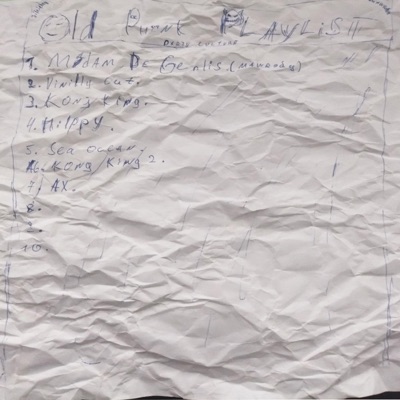 Old Phunk PLAYLiST
1. MADAM DE Genlis. (
2. Vinilly cut.
3. KONG KING.
4. HiPPY.
5. Sea ocean.
6. KONG KING 2.
7. AX.
8.
9.
10.